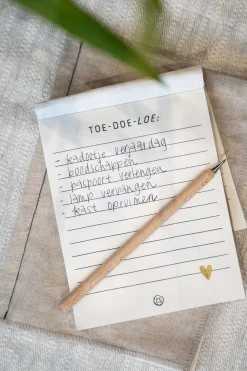 TOE-DOE-LOE:
- kadootje verjaardag
- boodschappen
- paspoort verlengen
- lamp vervangen
- kast opruimen